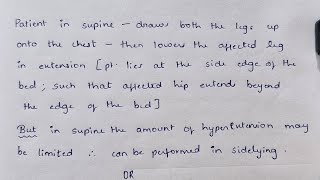 Patient in supine – draws both the legs up
onto the chest – then lower the affected leg
in extension [pt. lies at the side edge of the
bed ; such that affected hip extends beyond
the edge of the bed]
But in supine the amount of hyperextension may
be limited ∴ can be performed in sidelying.
OR